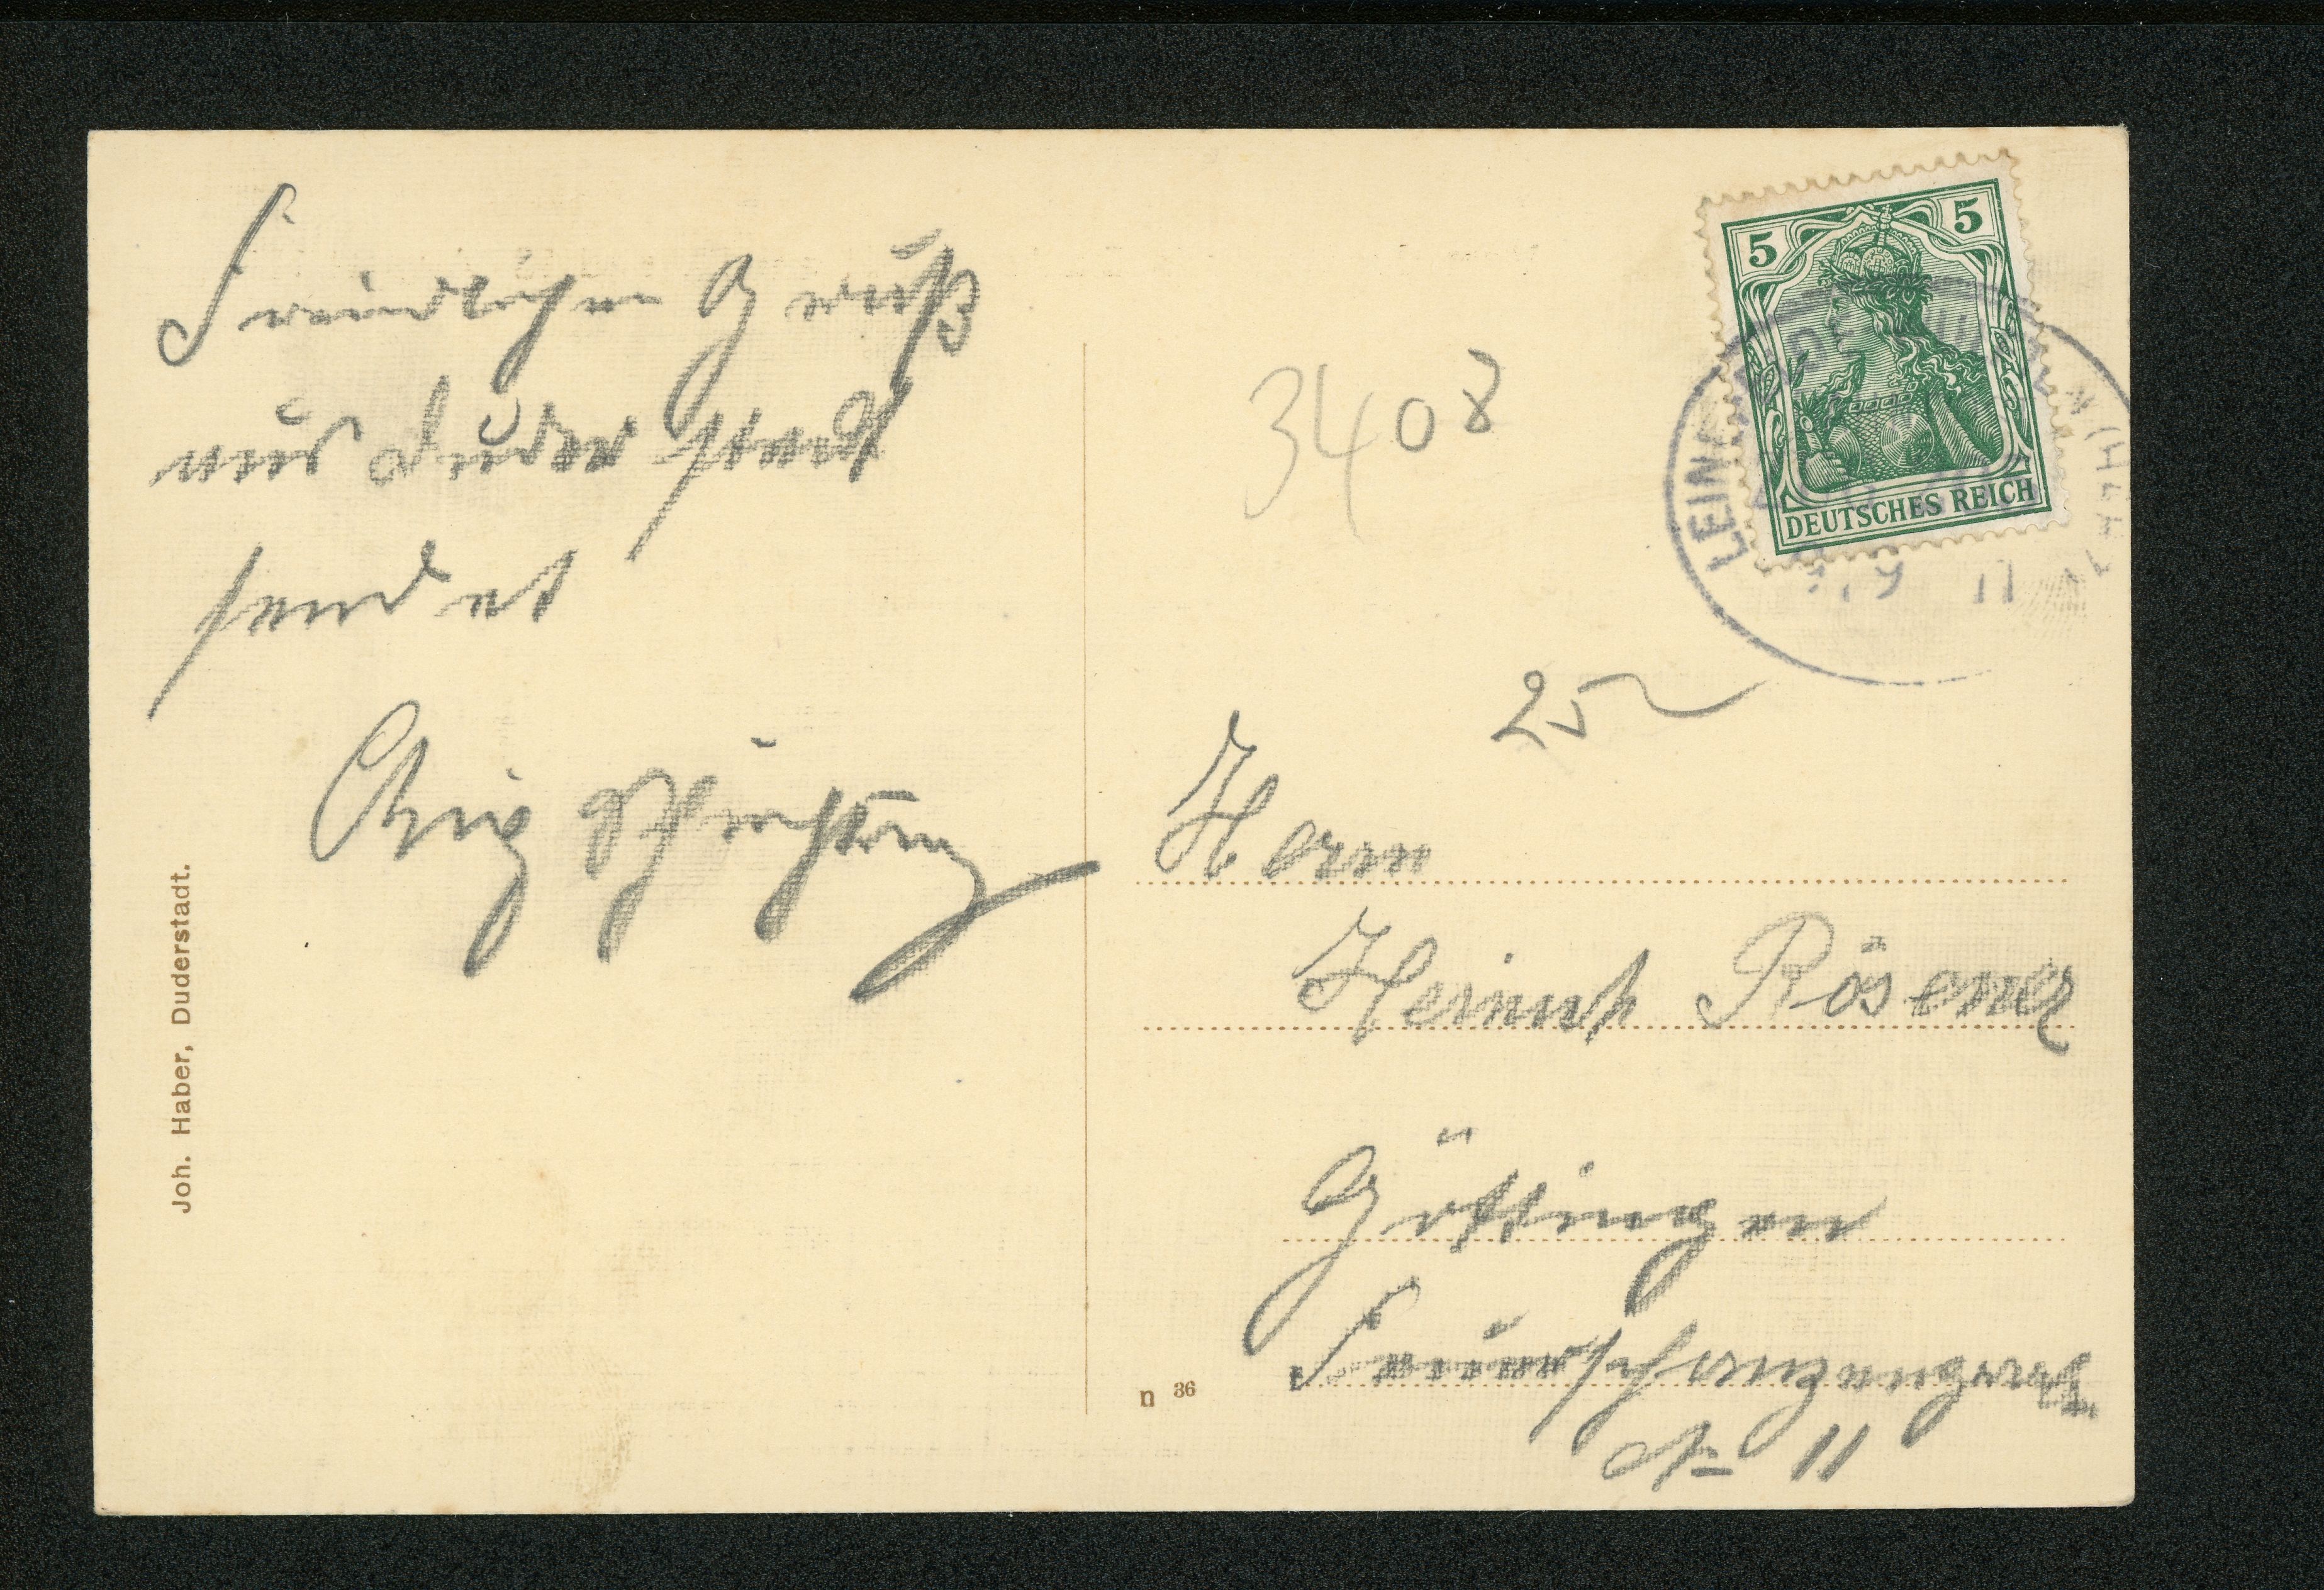 Freundlichen Gruß
aus Duderstadt
sendet
Joh. Haber, Duderstadt.
5 5
DEUTSCHES REICH
3408
25
Herrn
Heinrich Rösener
Göttingen
n 36
№ 11